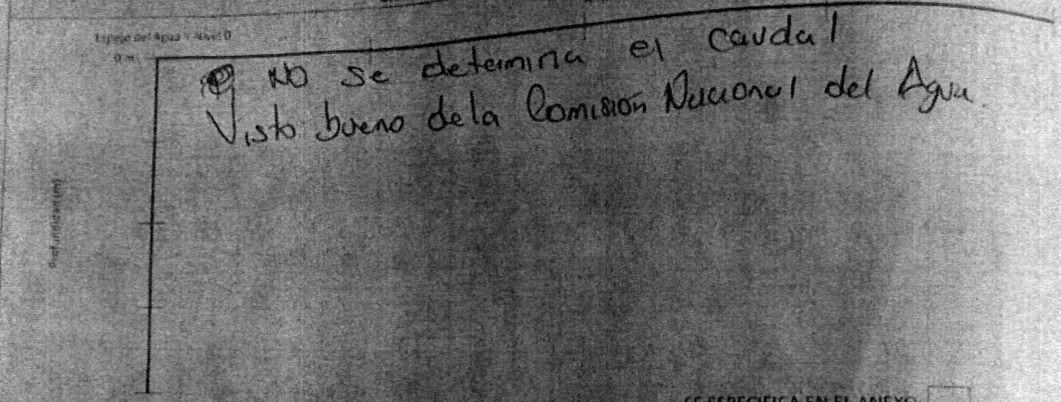 Espejo del Agua Y Nivel 0
0 m
No se determina el caudal
Visto bueno dela Comisión Nacional del Agua.
Profundidad (m)
SE ESPECIFICA EN EL ANEXO